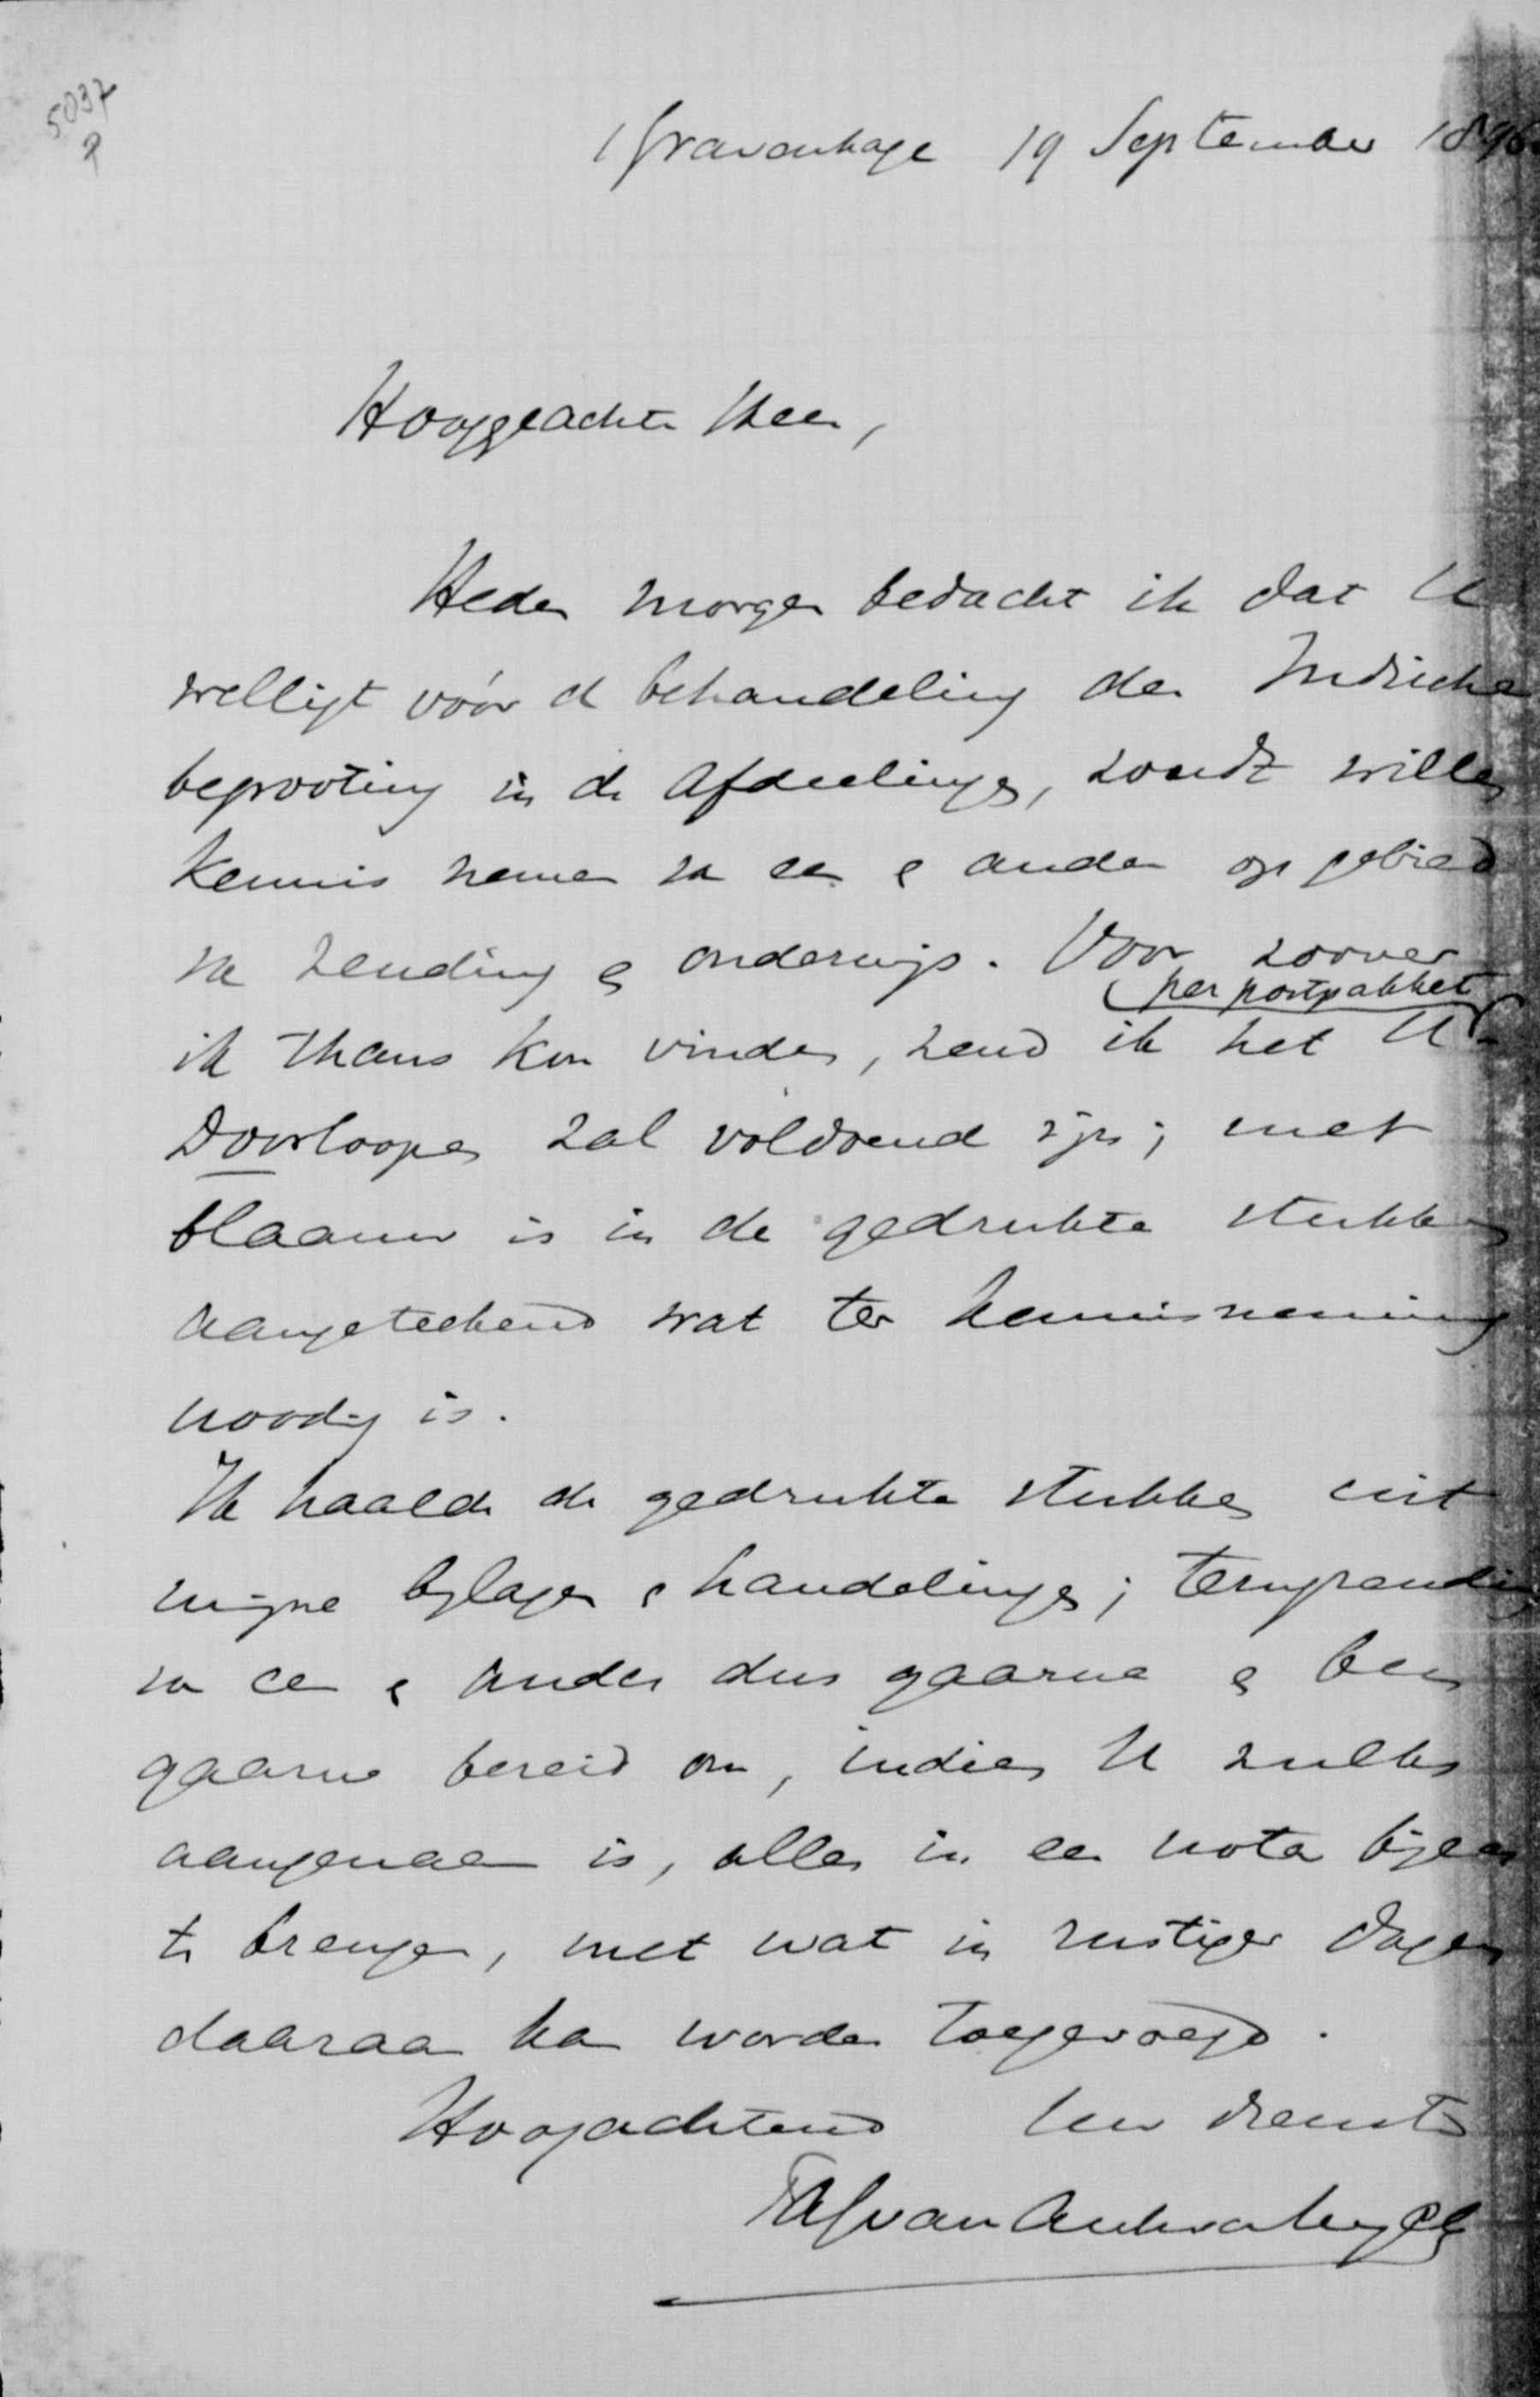 5037
'sGravenhage 19 September 1896
Hooggeachte Heer,
Heden morgen bedacht ik dat U
welligt vóór de behandeling der Indische
begrooting in de Afdeelingen, zoudt willen
kennis nemen van een en ander op gebied
van zending en onderwijs. Voor zoover
per postpakket
ik thans kon vinden, zend ik het U.
Doorloopen zal voldoend zijn; met
blaauw is in de gedrukte stukken
aangeteekend wat ter kennisneming
noodig is.
Ik haalde de gedrukte stukken uit
mijne bijlagen en handelingen; terugzending
van een en ander dus gaarne en ben
gaarne bereid om, indien U zulks
aangenaam is, alles in een nota bijeen
te brengen, met wat in rustiger dagen
daaraan kan worden toegevoegd.
Hoogachtend Uw dienstv